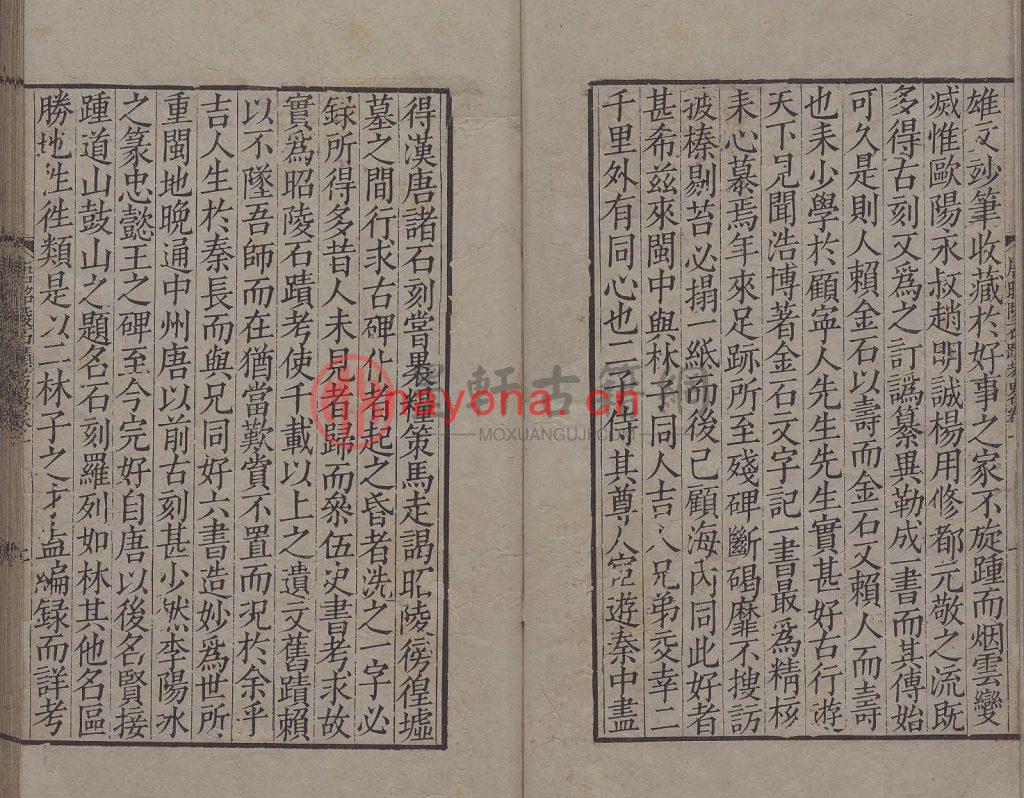 雄文妙筆收藏於好事之家不旋踵而烟雲變
滅惟歐陽永叔趙明誠楊用修都元敬之流既
多得古刻又爲之訂譌纂異勒成一書而其傳始
可久是則人賴金石以壽而金石又賴人而壽
也耒少學於顧寧人先生先生實甚好古行遊
天下見聞浩博著金石文字記一書最爲精核
耒心慕焉年來足跡所至殘碑斷碣靡不搜訪
披榛剔苔必搨一紙而後已顧海內同此好者
甚希兹來閩中與林子同人吉人兄弟交幸二
千里外有同心也二子侍其尊人宦遊秦中盡
得漢唐諸石刻嘗裹糧策馬走謁昭陵徬徨墟
墓之間行求古碑仆者起之昏者洗之一字必
録所得多昔人未見者歸而叅伍史書考求故
實爲昭陵石蹟考使千載以上之遺文舊蹟賴
以不墜吾師而在猶當歎賞不置而况於余乎
吉人生於秦長而與兄同好六書造妙爲世所
重閩地晚通中州唐以前古刻甚少然李陽冰
之篆忠懿王之碑至今完好自唐以後名賢接
踵道山鼓山之題名石刻羅列如林其他名區
勝地往徃類是以二林子之才盍編録而詳考
唐昭陵石蹟考畧
墨軒古籍網
nayona.cn
MOXUANGUJI.COM